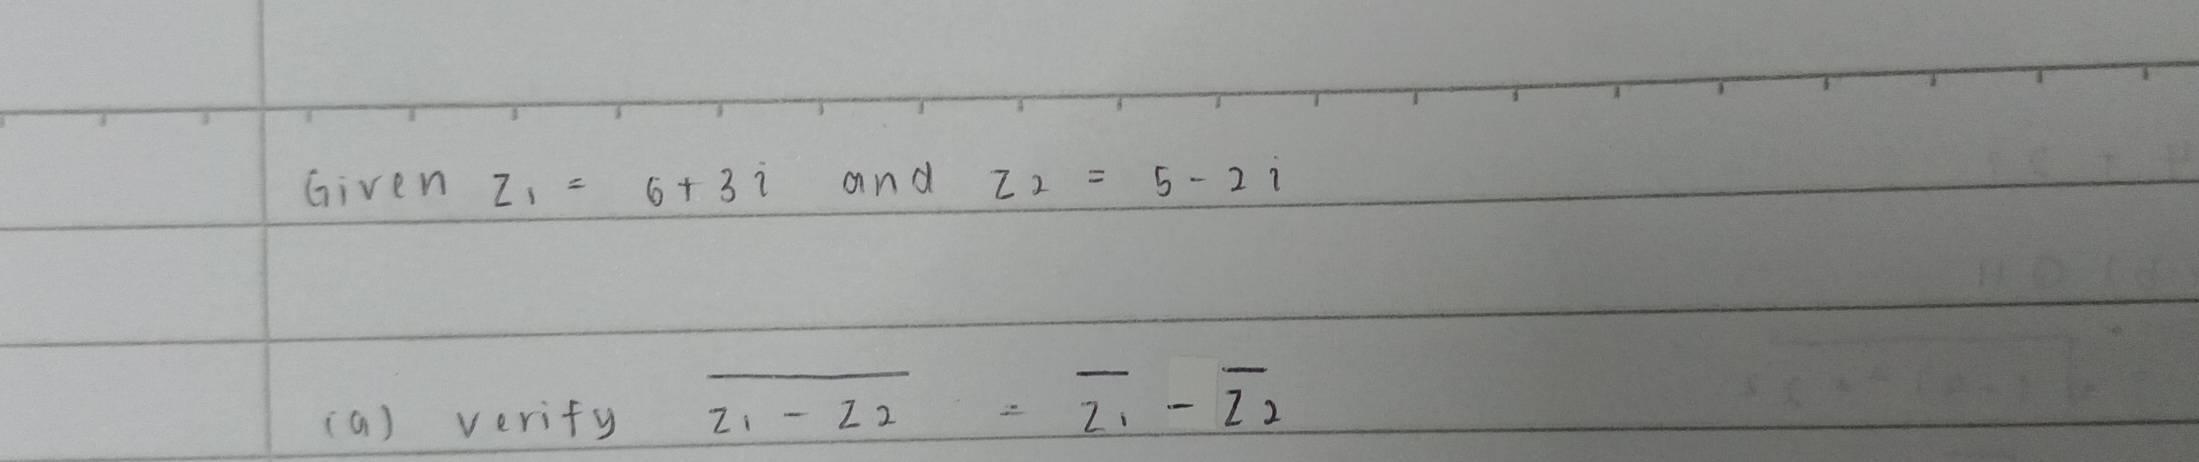 Given z₁ = 6+3i and z₂ = 5-2i
(a) verify \overline{z₁ - z₂} = \overline{z₁} - \overline{z₂}